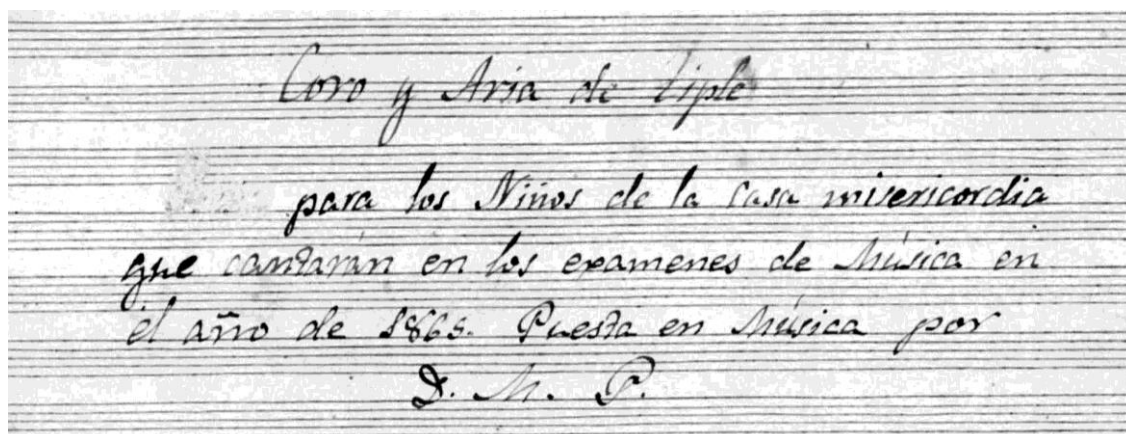 Coro y Aria de Tiple
para los Niños de la Casa misericordia
que cantarán en los examenes de Música en
el año de 1865. Puesta en Música por
D. M. P.